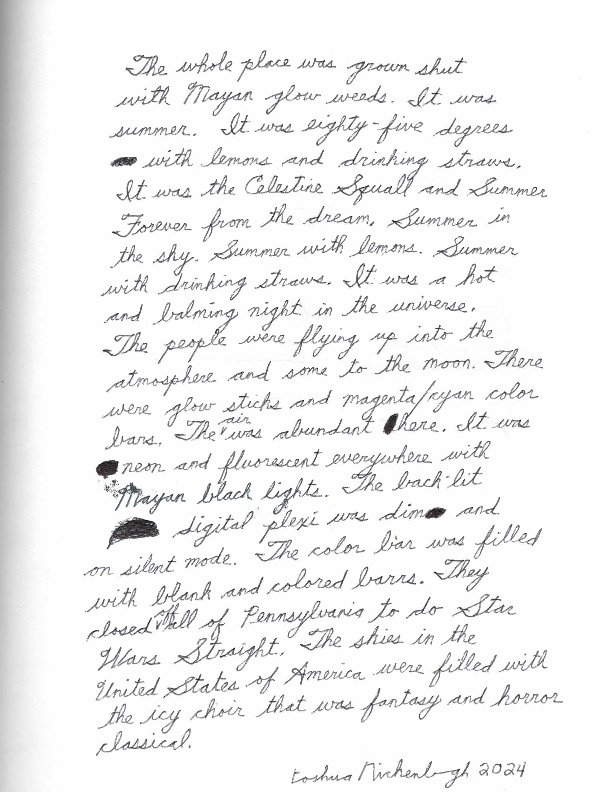 The whole place was grown shut
with Mayan glow weeds. It was
summer. It was eighty-five degrees
with lemons and drinking straws.
It was the Celestine Squall and Summer
Forever from the dream. Summer in
the sky. Summer with lemons. Summer
with drinking straws. It was a hot
and balming night in the universe.
The people were flying up into the
atmosphere and some to the moon. There
were glow sticks and magenta/cyan color
bars. The air was abundant here. It was
neon and fluorescent everywhere with
Mayan black lights. The back-lit
digital plexi was dim and
on silent mode. The color bar was filled
with blank and colored barrs. They
closed off all of Pennsylvania to do Star
Wars Straight. The skies in the
United States of America were filled with
the icy choir that was fantasy and horror
classical.
2024